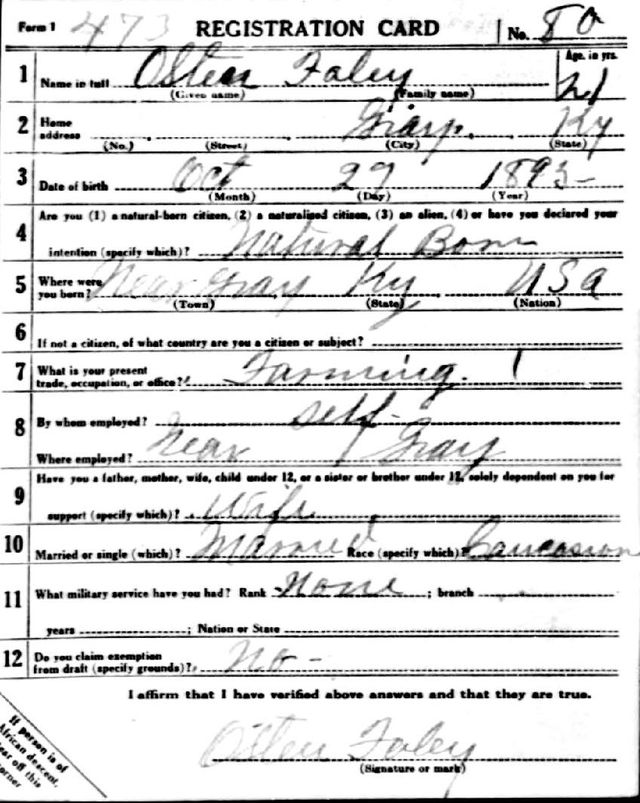 Form 1 473 REGISTRATION CARD No. 80
1 Name in full Osten Foley Age, in yrs. 21
(Given name) (Family name)
2 Home address Gray, Ky
(No.) (Street) (City) (State)
3 Date of birth Oct 27 1895
(Month) (Day) (Year)
4 Are you (1) a natural-born citizen, (2) a naturalized citizen, (3) an alien, (4) or have you declared your
intention (specify which)? Natural Born
5 Where were you born? Near Gray Ky USA
(Town) (State) (Nation)
6 If not a citizen, of what country are you a citizen or subject?
7 What is your present trade, occupation, or office? Farming.
8 By whom employed? self
Where employed? Near Gray
9 Have you a father, mother, wife, child under 12, or a sister or brother under 12, solely dependent on you for
support (specify which)? Wife
10 Married or single (which)? Married Race (specify which)? Caucasion
11 What military service have you had? Rank None ; branch
years ; Nation or State
12 Do you claim exemption from draft (specify grounds)? No -
I affirm that I have verified above answers and that they are true.
Osten Foley
(Signature or mark)
If person is of
African descent,
tear off this
corner